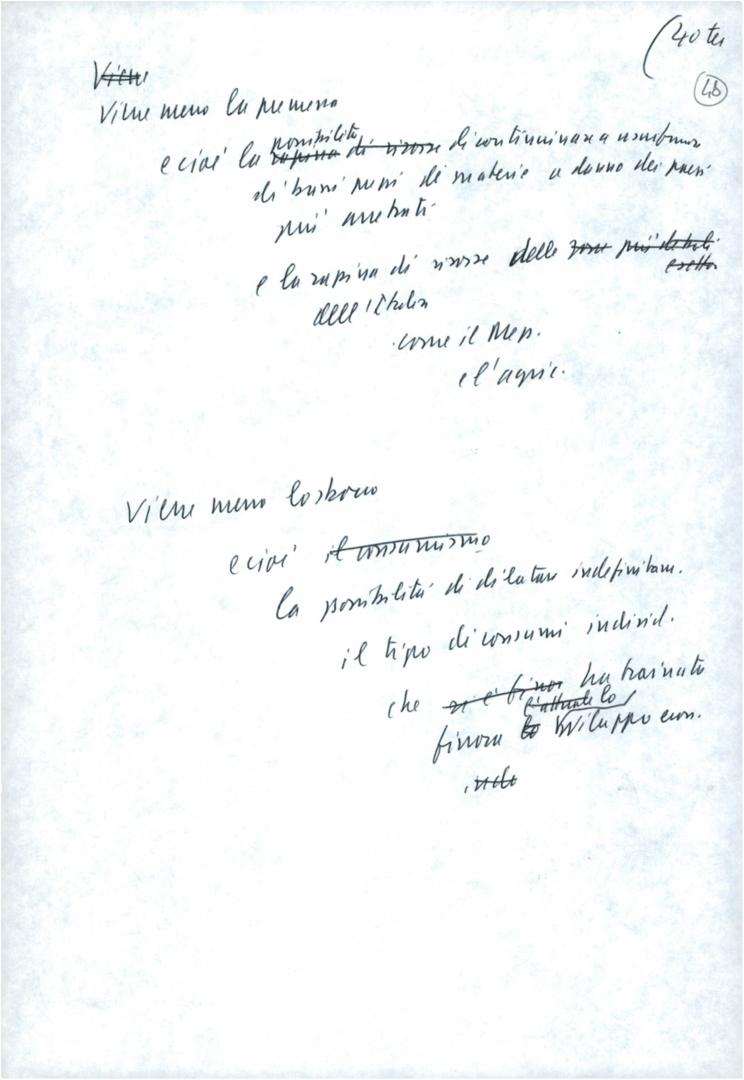 (40 ter
48
Viene
Viene meno la premessa
possibilità
e cioè la rapina di risorse di continuare a usufruire
di bassi prezzi di materie a danno dei paesi
più arretrati
e la rapina di risorse delle zone più deboli
dell'Italia
come il Mep.
e l'agric.
Viene meno lo sbocco
e cioè il consumismo
la possibilità di dilatare indefinitam.
il tipo di consumi individ.
che si è finor ha trainato
l'attuale lo
finora lo sviluppo econ.